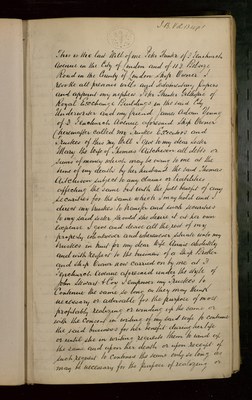 This is the last Will of me John Shuter of 3 Fenchurch
Avenue in the City of London and of 112 Victoria
Road in the County of London Ship Owner I
revoke all previous wills and testamentary papers
and appoint my nephew John Shuter of
Royal Exchange Buildings in the said City
Underwriter and my friend James Adam Young
of 3 Fenchurch Avenue aforesaid Ship Owner
(hereinafter called my Trustees) Executors and
Trustees of this my Will I Give to my dear sister
Mary the wife of Thomas Hutchison all debts or
sums of money which may be owing to me at the
time of my death by her husband the said Thomas
Hutchison subject to any claims or liabilities
affecting the same but with the full benefit of any
securities for the same which I may hold and I
direct my Trustees to transfer such securities
to my said sister should she desire it at her own
expense I give and devise all the rest of my
property whatsoever and wheresoever situate unto my
Trustees in trust for my dear wife absolutely
and with respect to the business of a Ship Broker
and Ship Owner now carried on by me at 3
Fenchurch Avenue aforesaid under the style of
John & Co I empower my Trustees to
Continue the same so long as they may think
necessary or advisable for the purpose of more
profitably realizing or winding up the same or
with the Consent in writing of my said wife to continue
the said business for her benefit during her life
or until she in writing requests them to wind up
the same and upon her death or upon receipt of
such request to Continue the same only so long as
may be necessary for the purpose of realizing or